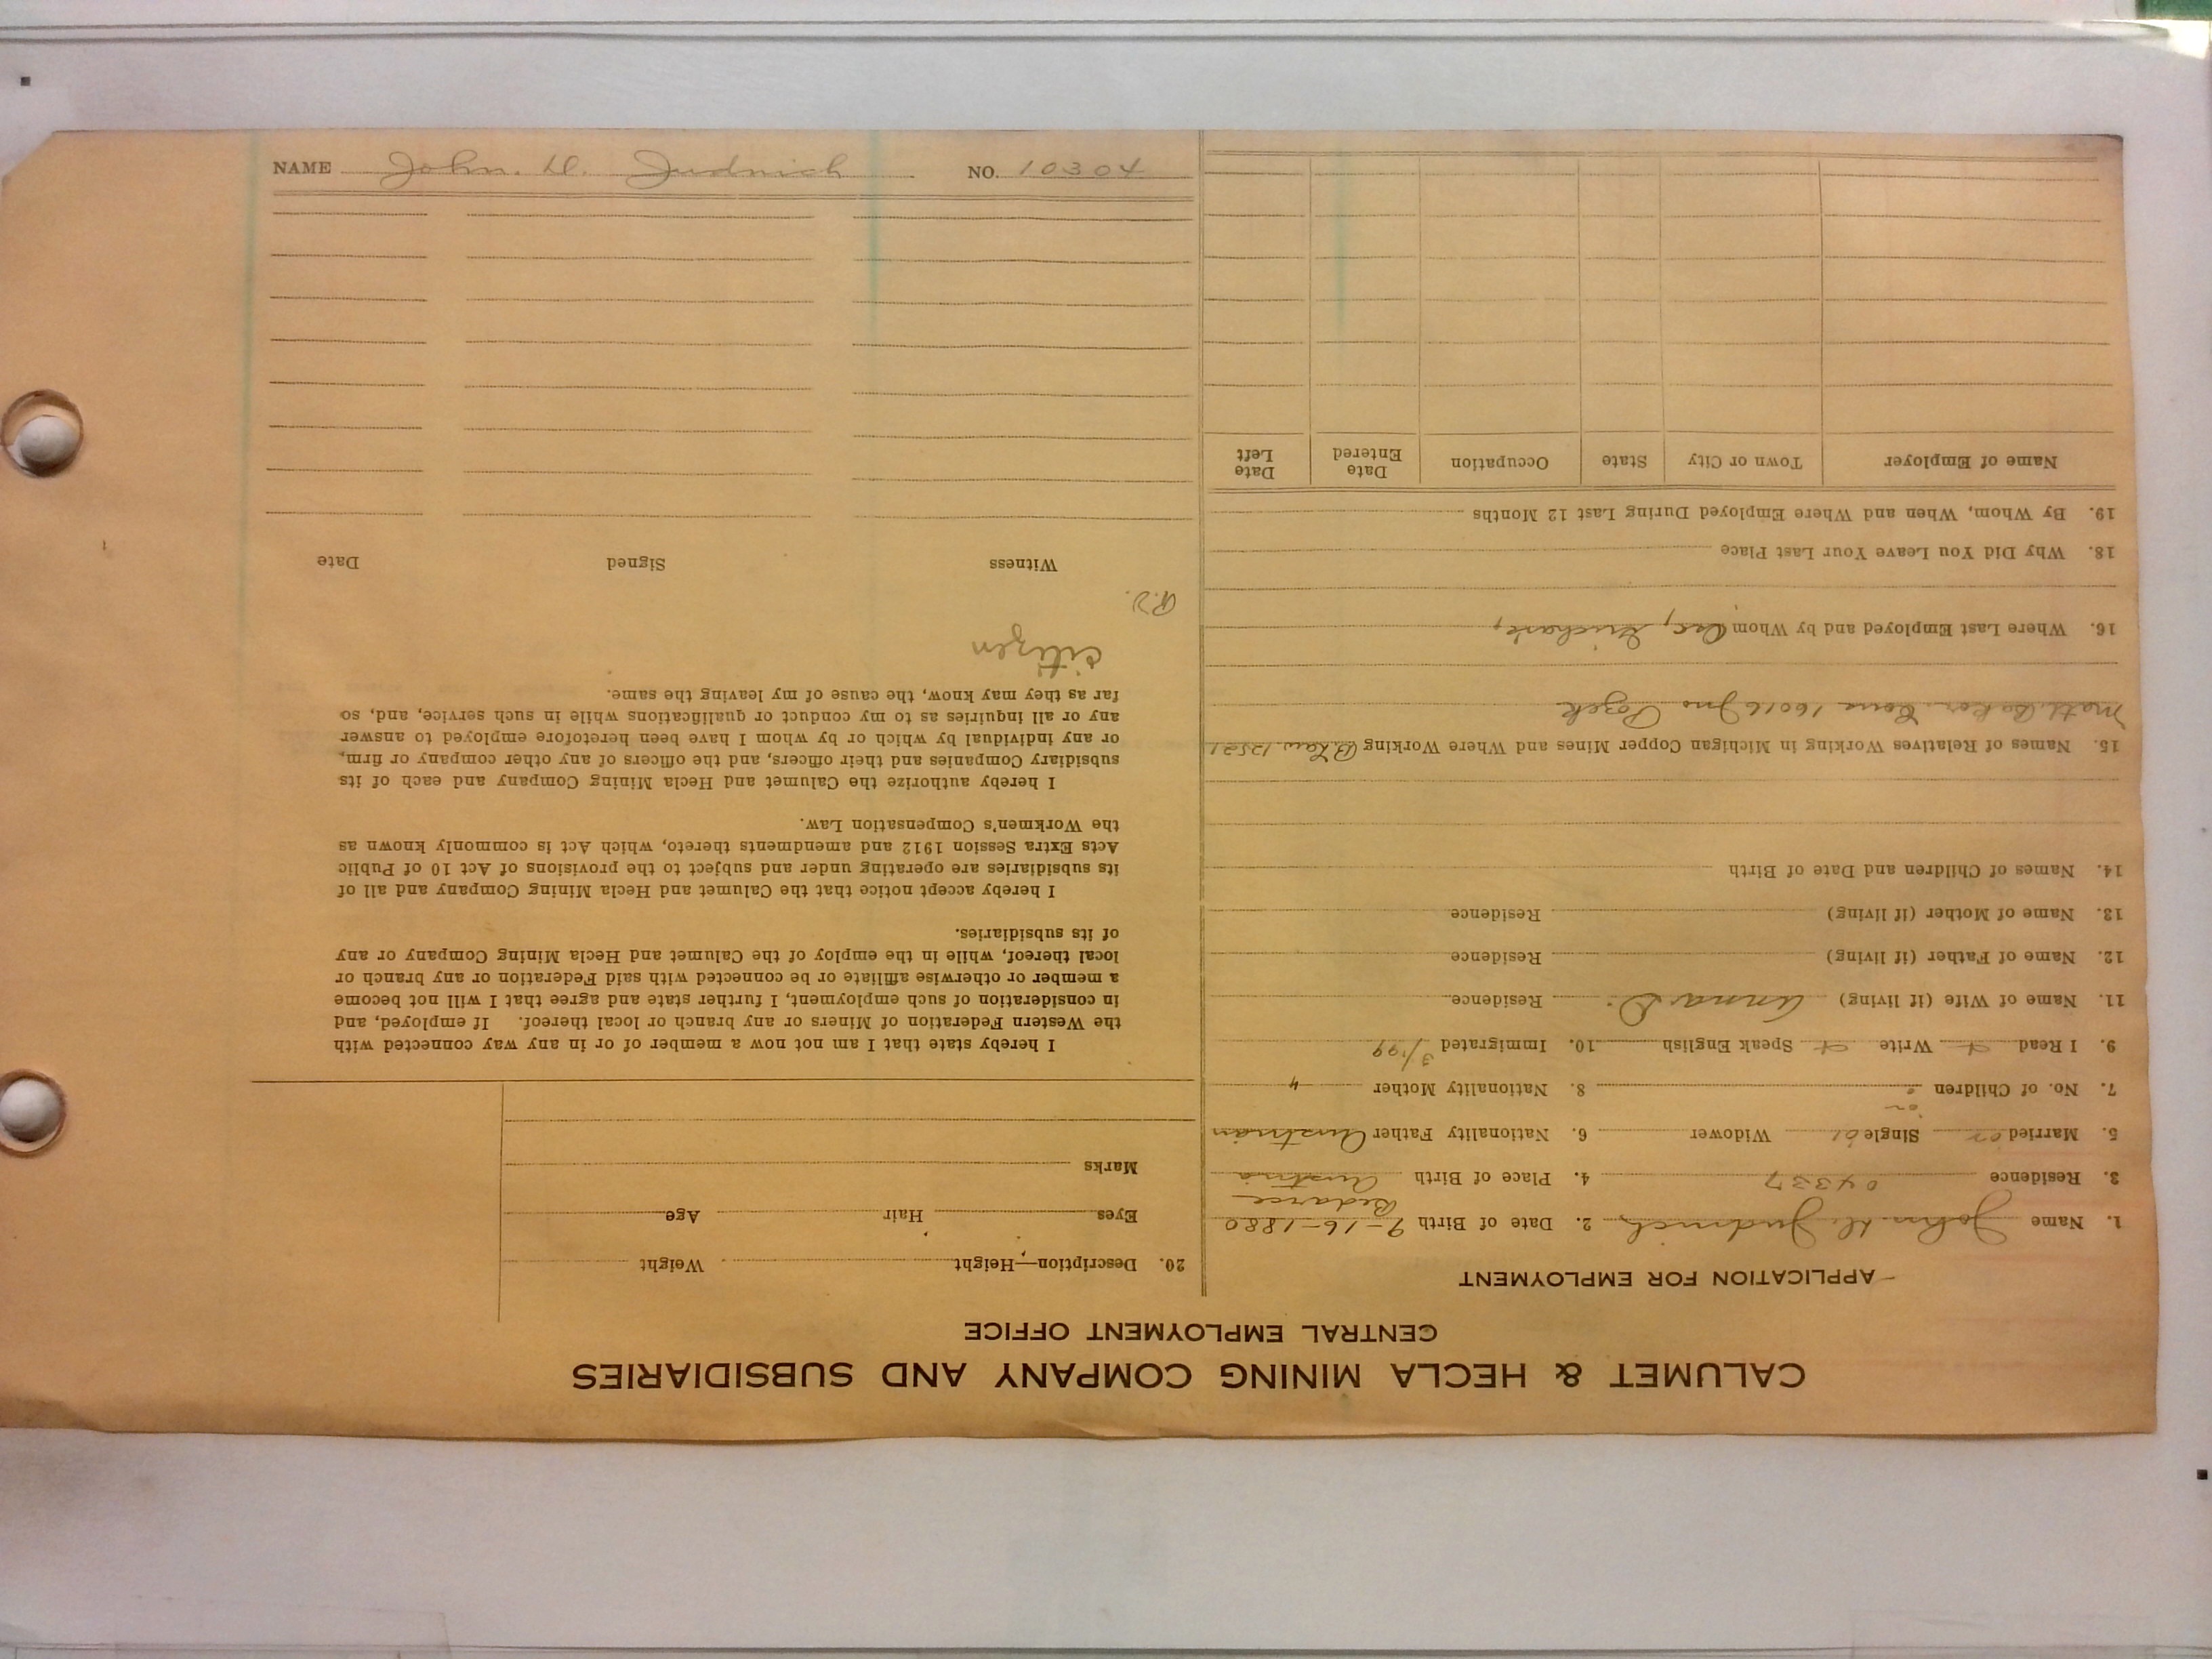 CALUMET & HECLA MINING COMPANY AND SUBSIDIARIES
CENTRAL EMPLOYMENT OFFICE
APPLICATION FOR EMPLOYMENT
1. Name John D. Judnich 2. Date of Birth 9-16-1880
3. Residence 04337 4. Place of Birth Austria
5. Married Single Widower 6. Nationality Father Austrian
7. No. of Children 8. Nationality Mother "
9. I Read Write Speak English 10. Immigrated 3/99
11. Name of Wife (if living) Anna D. Residence
12. Name of Father (if living) Residence
13. Name of Mother (if living) Residence
14. Names of Children and Date of Birth
15. Names of Relatives Working in Michigan Copper Mines and Where Working 12521
Matt 16016 Jno Pozek
16. Where Last Employed and by Whom
18. Why Did You Leave Your Last Place
19. By Whom, When and Where Employed During Last 12 Months
Name of Employer Town or City State Occupation Date Entered Date Left
20. Description—Height Weight
Eyes Hair Age
Marks
I hereby state that I am not now a member of or in any way connected with
the Western Federation of Miners or any branch or local thereof. If employed, and
in consideration of such employment, I further state and agree that I will not become
a member or otherwise affiliate or be connected with said Federation or any branch or
local thereof, while in the employ of the Calumet and Hecla Mining Company or any
of its subsidiaries.
I hereby accept notice that the Calumet and Hecla Mining Company and all of
its subsidiaries are operating under and subject to the provisions of Act 10 of Public
Acts Extra Session 1912 and amendments thereto, which Act is commonly known as
the Workmen's Compensation Law.
I hereby authorize the Calumet and Hecla Mining Company and each of its
subsidiary Companies and their officers, and the officers of any other company or firm,
or any individual by which or by whom I have been heretofore employed to answer
any or all inquiries as to my conduct or qualifications while in such service, and, so
far as they may know, the cause of my leaving the same.
citizen
Witness Signed Date
NAME John. D. Judnich NO. 10304